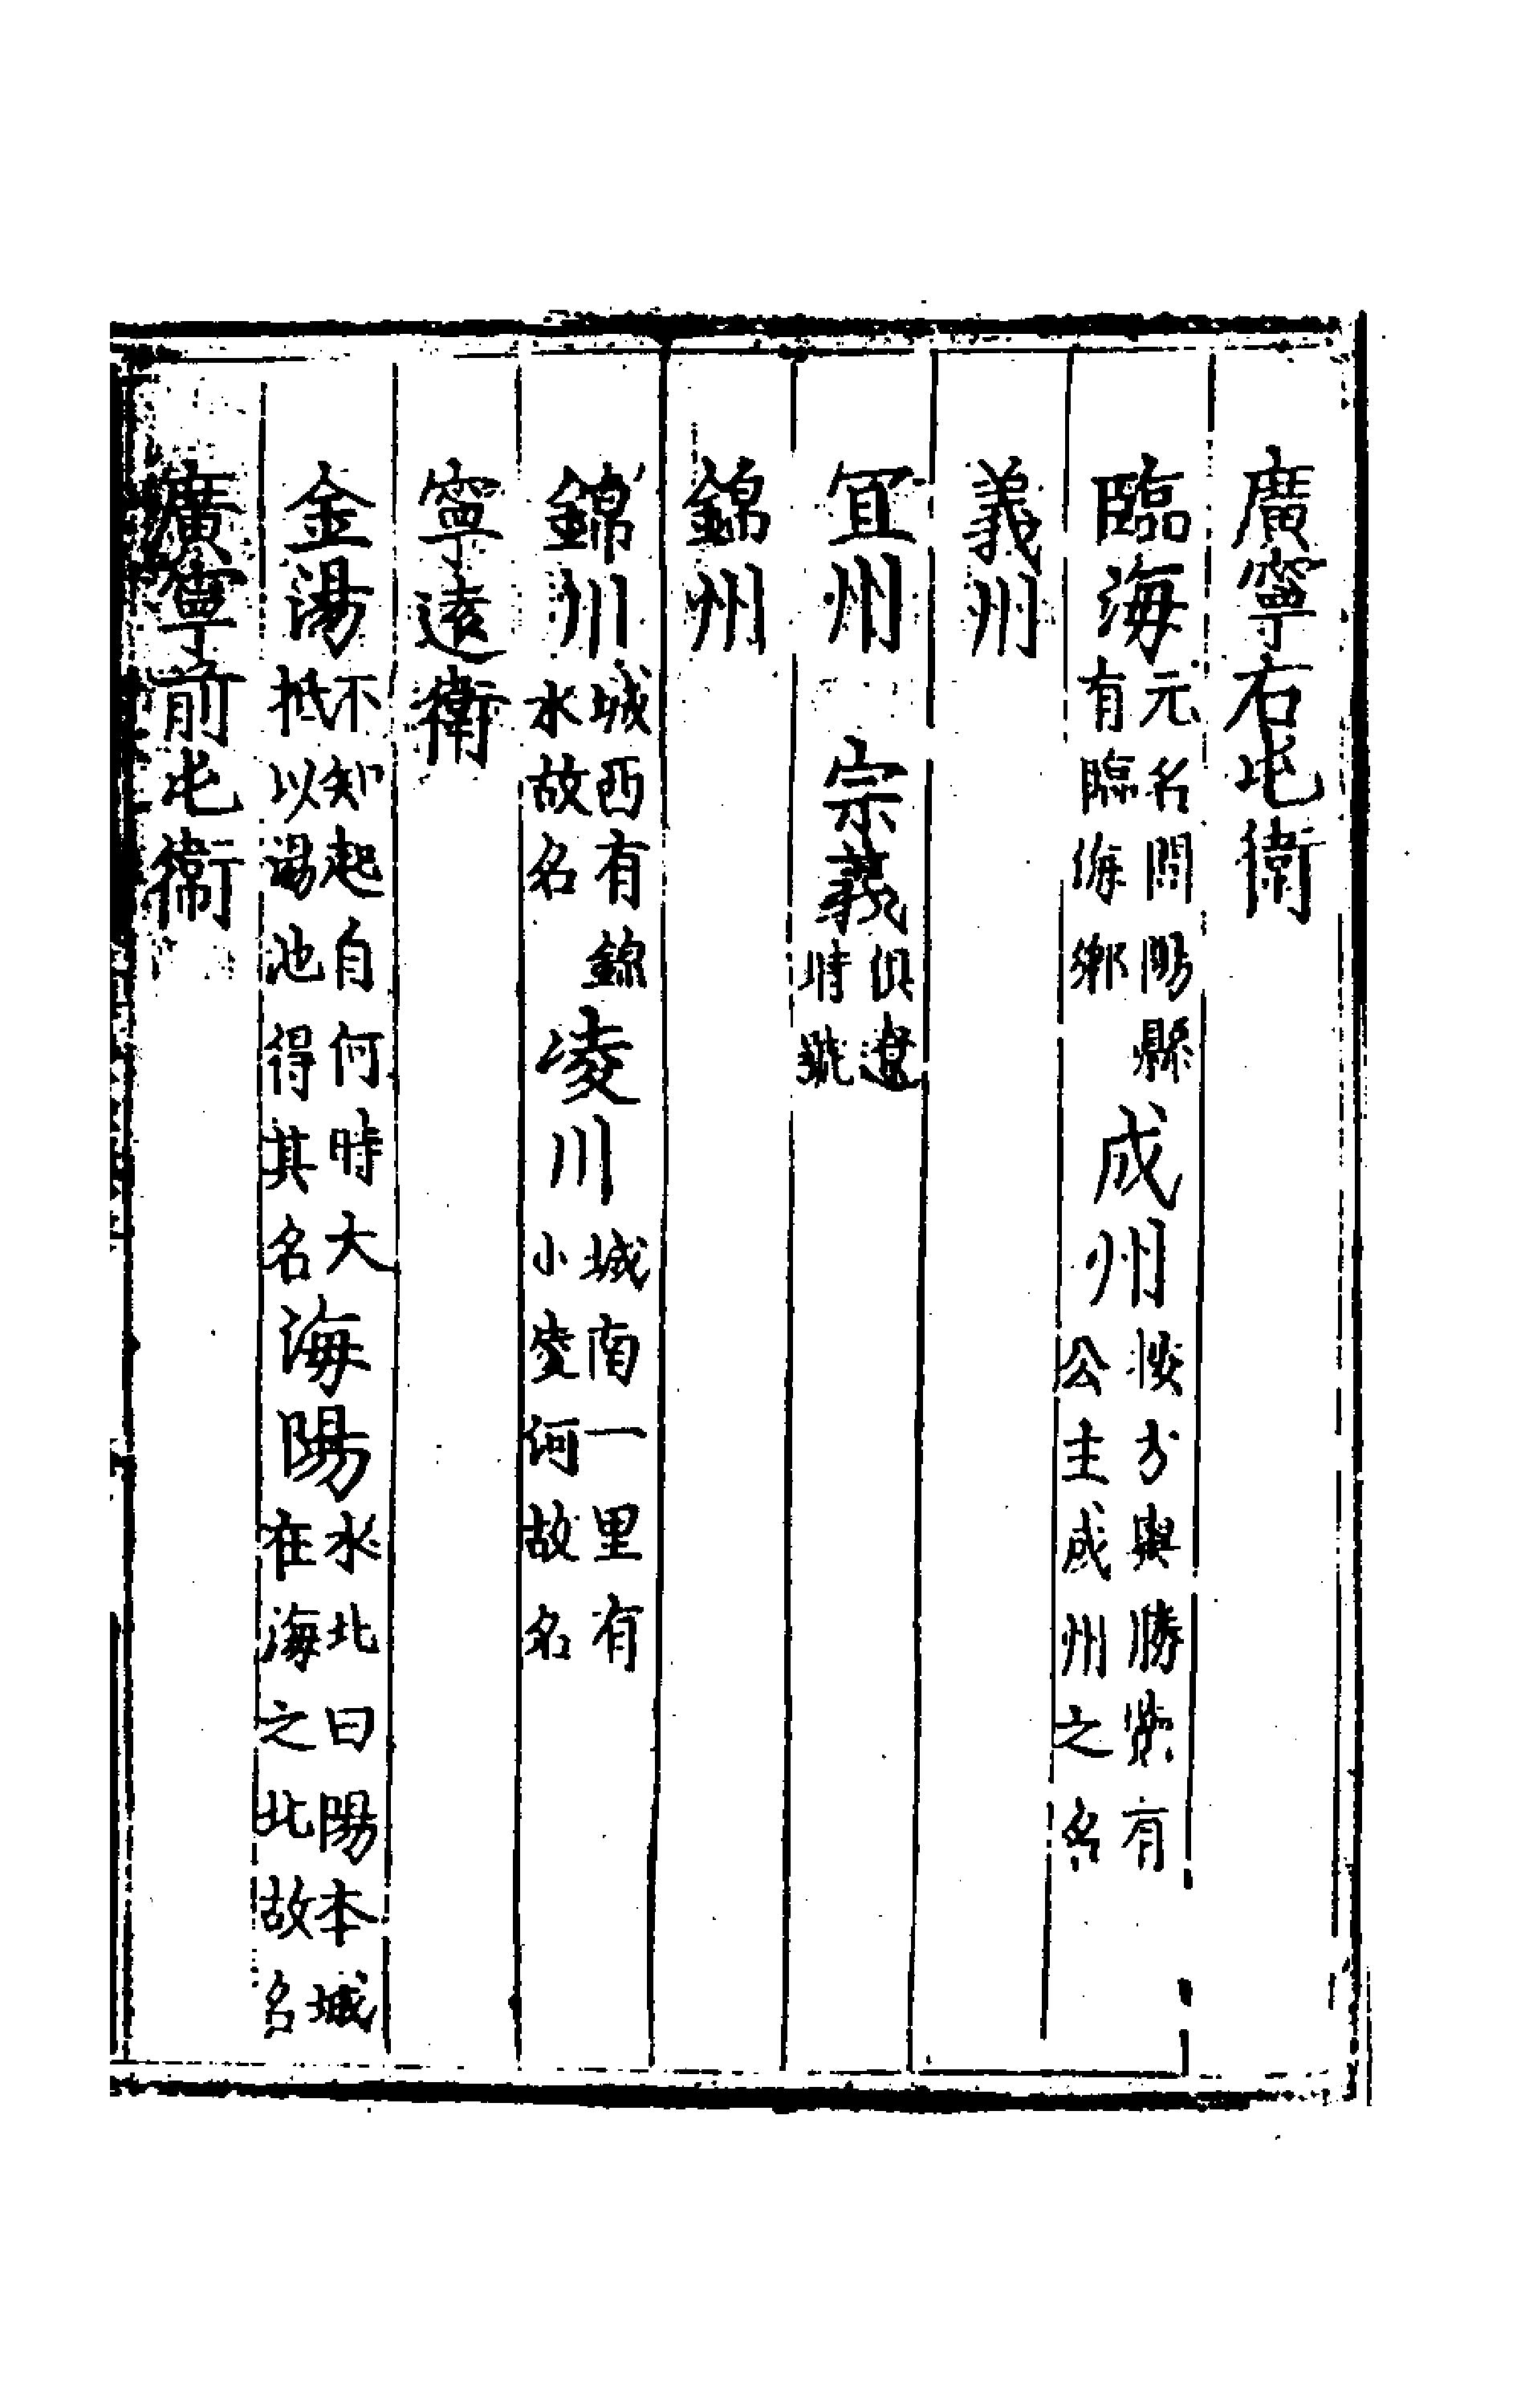 廣寧右屯衛
臨海元名閭陽縣有臨海鄉成州按方輿勝覽有公主成州之名
義州
宜州 宗義俱遼時號
錦州
錦川城西有錦水故名凌川城南一里有小凌河故名
寧遠衛
金湯不知起自何時大抵以湯池得其名海陽水北曰陽本城在海之北故名
廣寧前屯衛